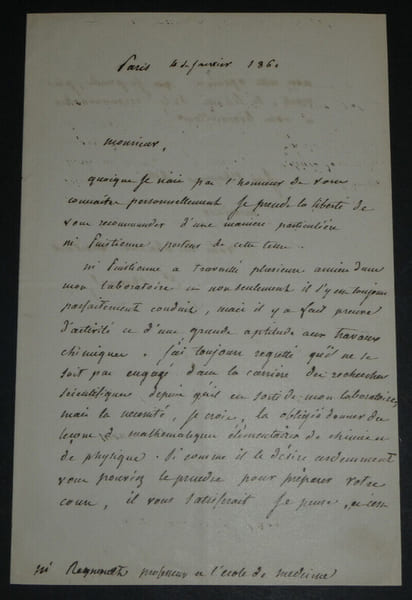 Paris 4 de Janvier 1860
monsieur,
quoique Je n'aie pas l'honneur de vous
connaitre personnellement Je prends la liberté de
vous recommander d'une manière particulière
porteur de cette lettre.
a travaillé plusieurs années dans
mon laboratoire et non seulement il s'y est toujours
parfaitement conduit, mais il y a fait preuve
d'activité et d'une grande aptitude aux travaux
chimiques. J'ai toujours regretté qu'il ne se
soit pas engagé dans la carrière des recherches
scientifiques depuis qu'il est sorti de mon laboratoire,
mais la nécessité, Je crois, l'a obligé à donner des
leçons de mathematiques élémentaires de chimie et
de physique. Si comme il le désire ardemment
vous pouviez le prendre pour préparer votre
cours, il vous satisferait Je pense, et c'est
professeur à l'école de medecine